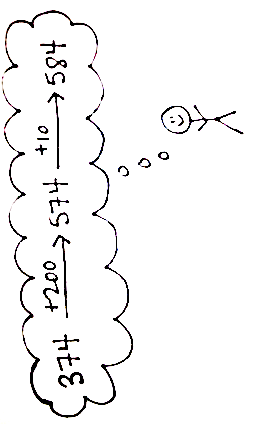 374 +200→ 574 +10→ 584